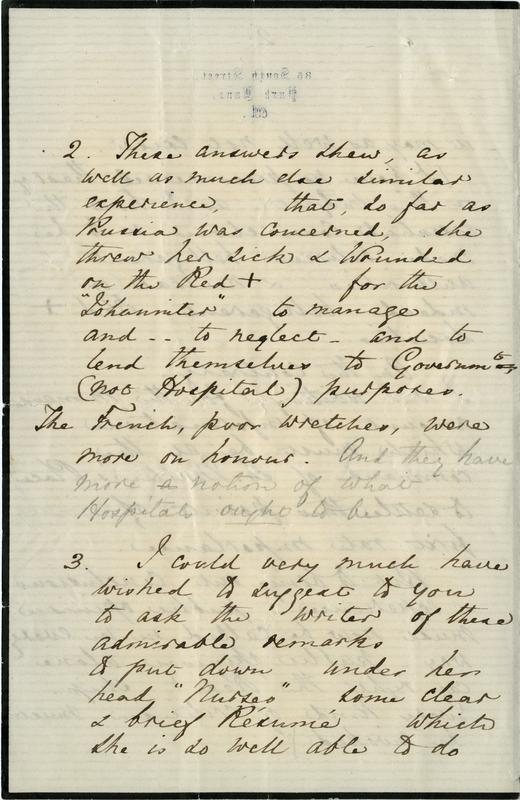 35 South Street,
Park Lane,
W.
2. These answers shew, as
well as much else similar
experience, that, so far as
Prussia was concerned, she
threw her Sick & Wounded
on the Red + for the
"Johanniter" to manage
and -- to neglect - and to
lend themselves to Governmt
(not Hospital) purposes.
The French, poor wretches, were
more on honour. And they have
more a notion of what
Hospitals ought to be.
3. I could very much have
wished to suggest to you
to ask the writer of these
admirable remarks
to put down under her
head "Nurses" some clear
& brief Résumé which
she is so well able to do